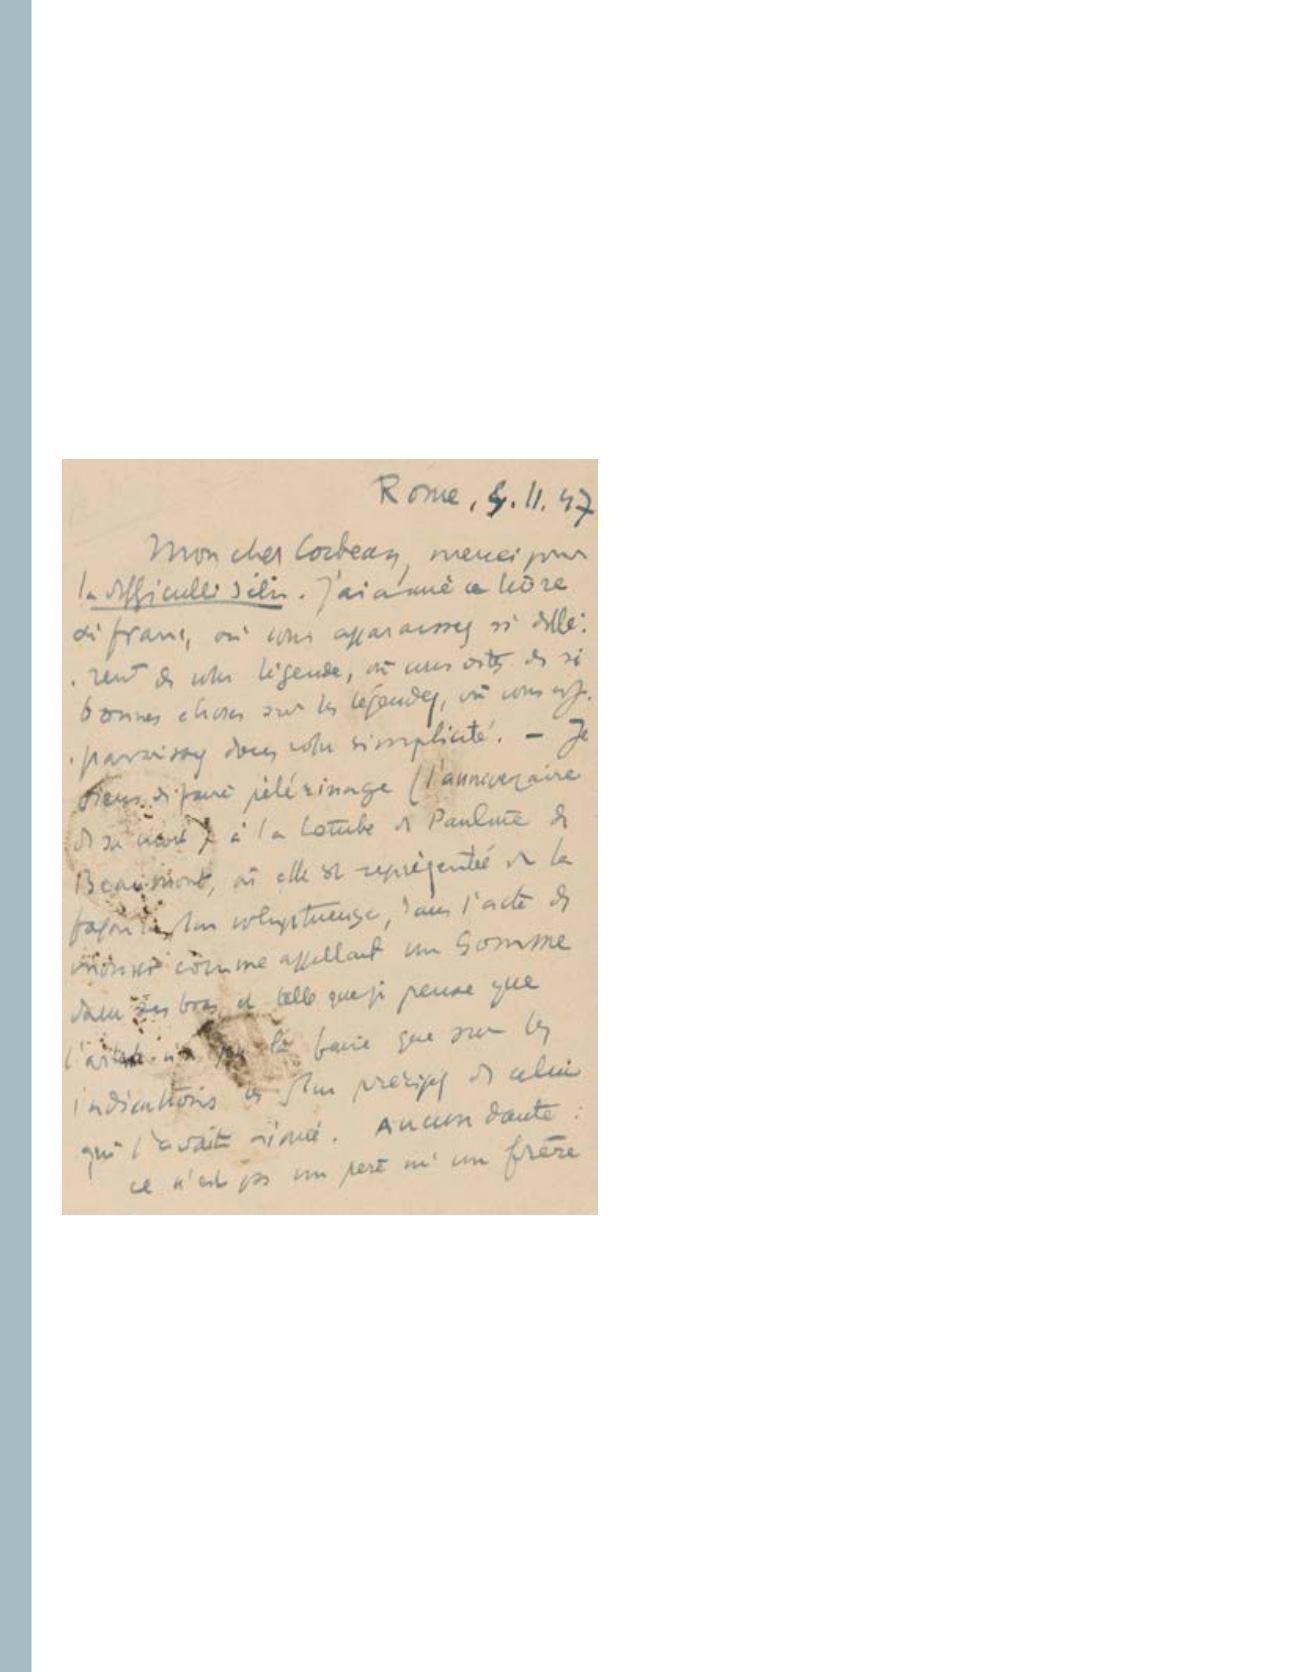 Rome, 4.11.47
Mon cher Corbeau, merci pour
la difficulté d'être. J'ai aimé ce livre
si franc, où vous apparaissez si diffé-
-rent de votre légende, où vous dites de si
bonnes choses sur les légendes, où vous ap-
-paraissez dans votre simplicité. — Je
viens de faire pélérinage (l'anniversaire
de sa mort) à la tombe de Pauline de
Beaumont, où elle est représentée de la
façon la plus voluptueuse, dans l'acte de
mourir comme appellant un homme
dans ses bras et telle que je pense que
l'artiste n'a pu la faire que sur les
indications les plus précises de celui
qui l'avait aimé. Aucun doute :
ce n'est pas un père ni un frère